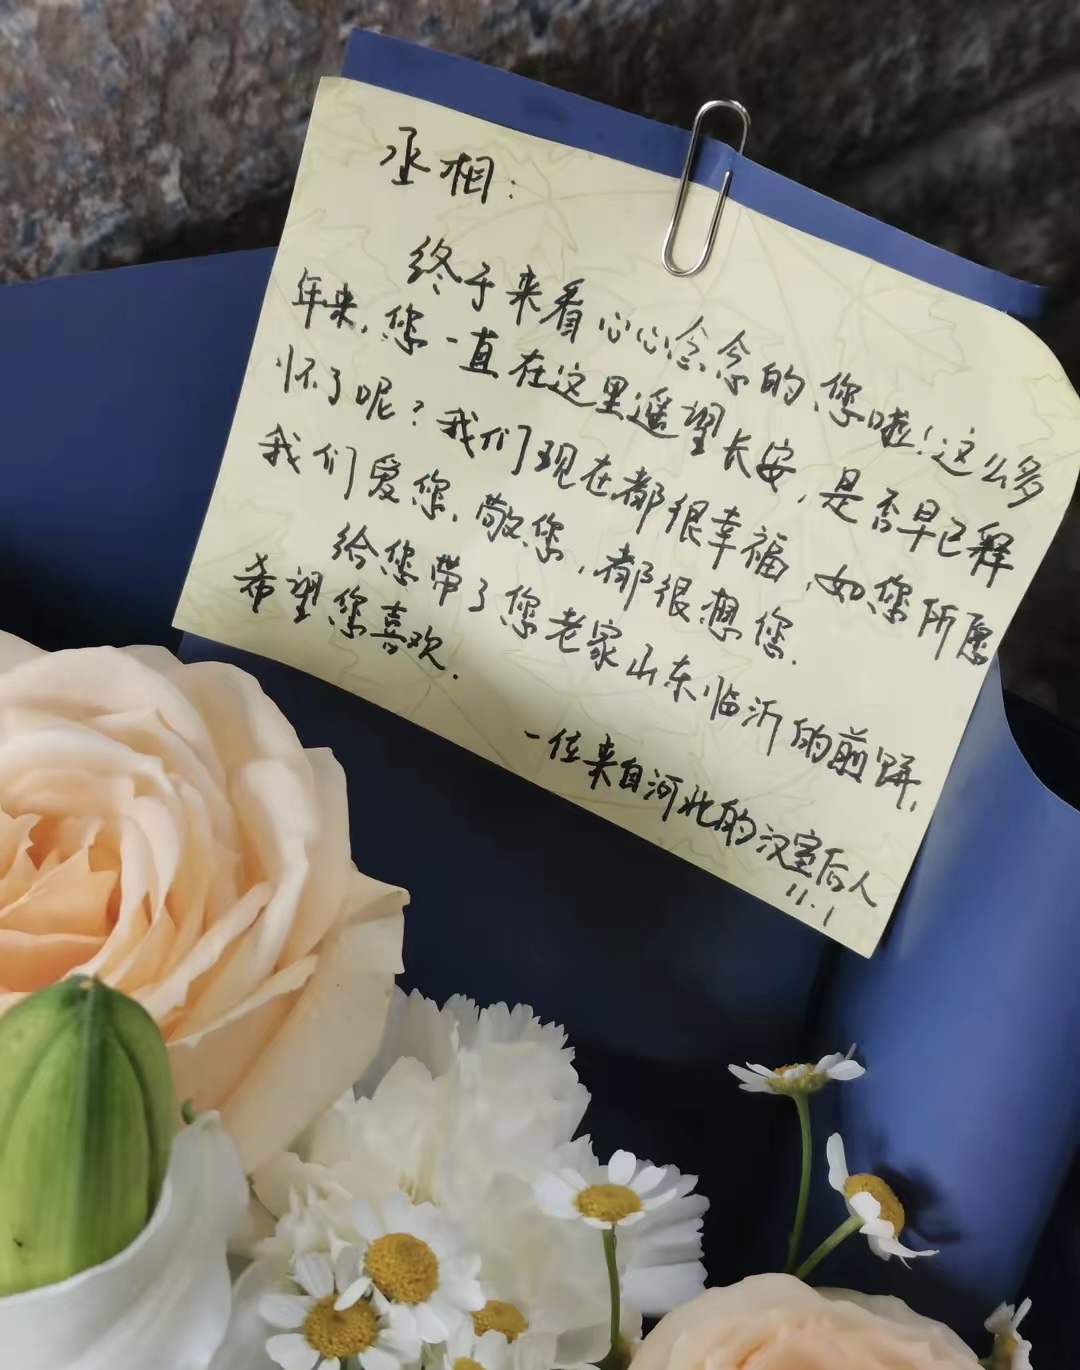 丞相：
终于来看心心念念的您啦！这么多
年来，您一直在这里遥望长安，是否早已释
怀了呢？我们现在都很幸福，如您所愿
我们爱您，敬您，都很想您.
给您带了您老家山东临沂的煎饼，
希望您喜欢.
一位来自河北的汉室后人
11.1